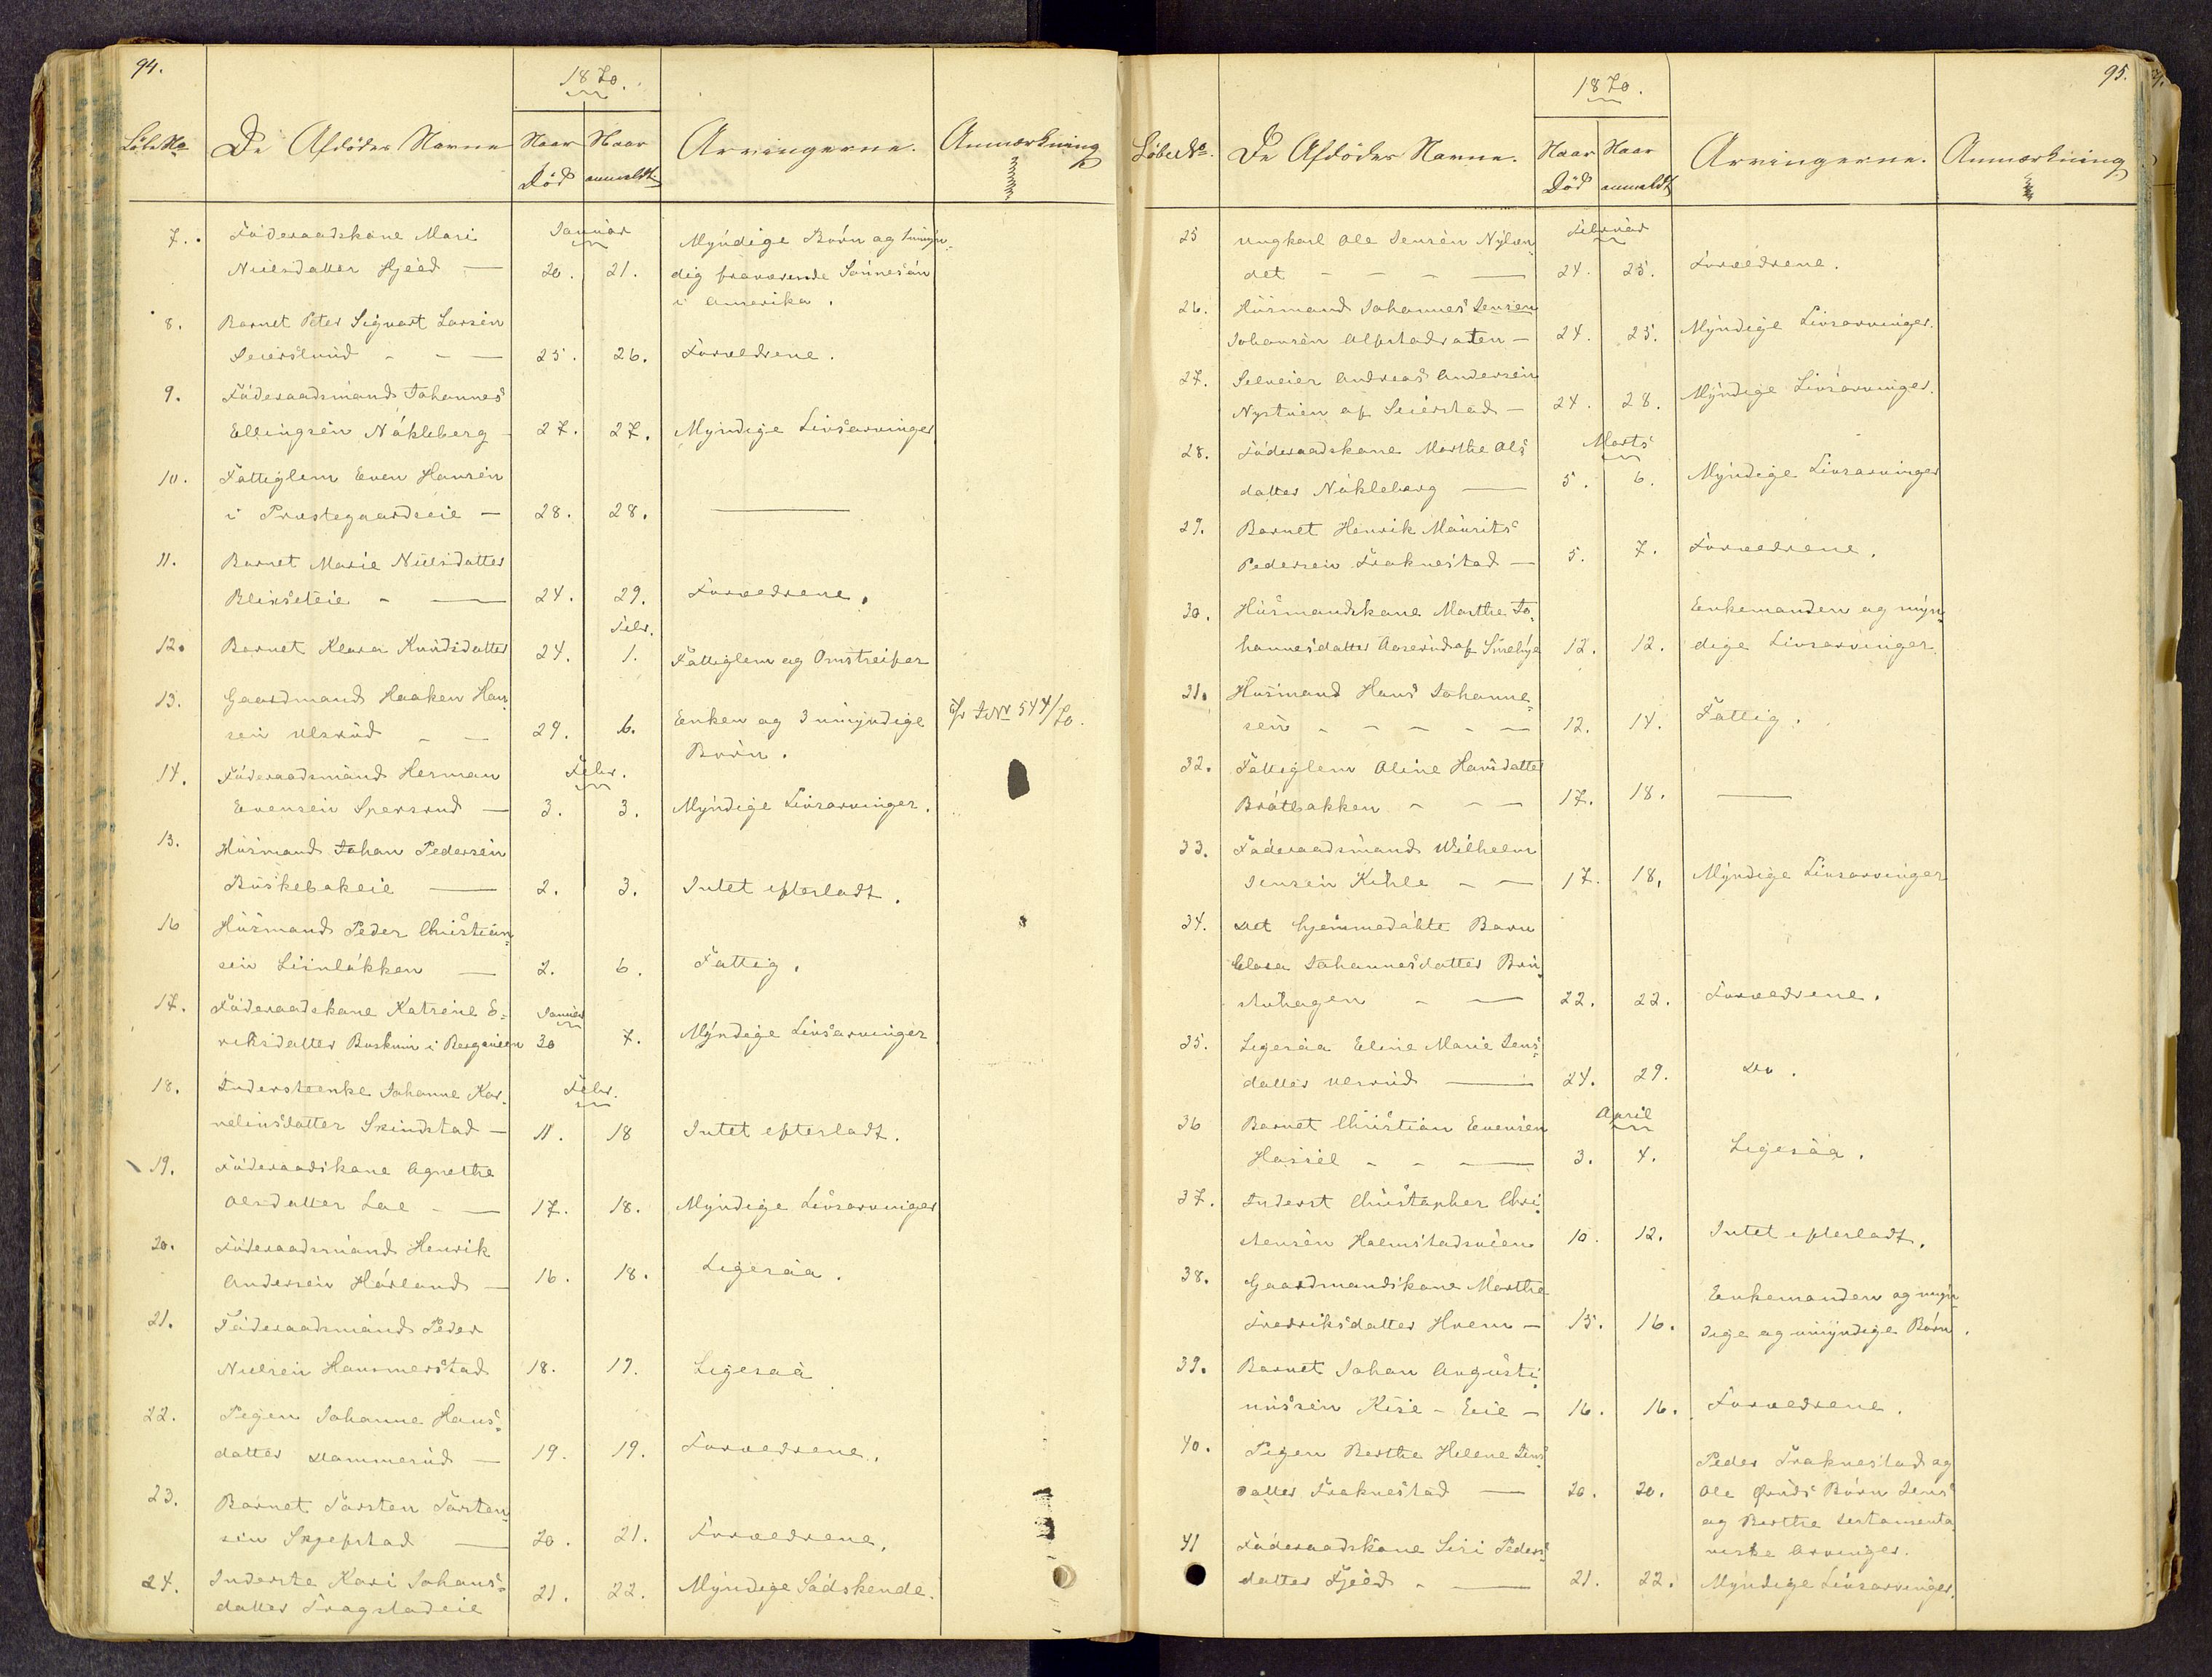 94.
1870.
Löbe No De Afdödes Navne Naar Död Naar anmeldt Arvingerne. Anmærkning
Januar
7. Föderaadskone Mari
Nielsdatter Hjeed — 20. 21. Myndige Börn og 1 umyn-
dig fraværende Sönnesön
i Amerika.
8. Barnet Peter Sigvart Larsen
Seierslund - - — 25. 26. Forældrene.
9. Föderaadsmand Johannes
Ellingsen Nökleberg - 27. 27. Myndige Livsarvinger
10. Fattiglem Even Hansen
i Præstegaardseie — 28. 28. ———
11. Barnet Marie Nielsdatter
- — 24. 29. Forældrene.
Febr.
12. Barnet Klara Knudsdatter 24. 1. Fattiglem og Omstreifer
13. Gaardmand Haaken Han-
sen Ulsrud - - 29. 6. Enken og 3 umyndige
Börn. J No 544/70.
Febr.
14. Föderaadsmand Herman
Evensen Sparsrud — 3. 3. Myndige Livsarvinger.
15. Husmand Johan Pedersen
Buskebakeie — 2. 3. Intet efterladt.
16 Husmand Peder Christian-
sen Liinlökken — 2. 6. Fattig.
17. Föderaadskone Katrine E-
Januar
riksdatter i 30 7. Myndige Livsarvinger
18. Indersteenke Johanne Kor-
Febr.
neliusdatter Skindstad — 11. 18 Intet efterladt.
19. Föderaadskone Agnethe
Olsdatter Loe - — 17. 18. Myndige Livsarvinger
20. Föderaadsmand Henrik
Andersen Hörland — 16. 18. Ligesaa.
21. Föderaadsmand Peder
Nielsen Hammerstad 18. 19. Ligesaa
22. Pigen Johanne Hans-
datter Dammerud — 19. 19. Forældrene.
23. Barnet Torsten Torsten-
sen Skjefstad — 20. 21. Forældrene.
24. Inderste Kari Johans-
datter Trogstadeie 21. 22. Myndige Södskende.
95.
1870.
Löbe No. De Afdödes Navne. Naar Död Naar anmeldt Arvingerne. Anmærkning
Februar
25 Ungkarl Ole Jensen Nylæn-
det - - - — 24. 25. Forældrene.
26. Husmand Johannes Jensen
Johansen Alfstadraten — 24. 25. Myndige Livsarvinger.
27. Selveier Andreas Andersen
Nystuen af Seierstad — 24. 28. Myndige Livsarvinger.
Marts
28. Föderaadskone Marthe Ols-
datter Nökleberg — 5. 6. Myndige Livsarvinger
29. Barnet Henrik Maurits
Pedersen Fraknestad — 5. 7. Forældrene.
30. Husmandskone Marthe Jo-
hannesdatter Aaserud af Smeby 12. 12. Enkemanden og myn-
dige Livsarvinger.
31. Husmand Hans Johanne-
sen - - - - — 12. 14. Fattig.
32. Fattiglem Oline Hansdatter
Bråtbakken - - — 17. 18. ——
33. Föderaadsmand Wilhelm
Jensen Kihle - — 17. 18. Myndige Livsarvinger
34. Det hjemmedöbte Barn
Clara Johannesdatter Bru-
stuhagen - — 22. 22. Forældrene.
35. Ligesaa Eline Marie Jens-
datter Ulsrud — 24. 29. Do.
April
36 Barnet Christian Evensen
Hassel - - — 3. 4. Ligesaa.
37. Inderst Christopher Chri-
stensen Holmstadveien 10. 12. Intet efterladt.
38. Gaardmandskone Marthe
Fredriksdatter Hvem — 15. 16. Enkemanden og myn-
dige og umyndige Börn.
39. Barnet Johan Augusti-
nussen Kise - Eie — 16. 16. Forældrene.
40. Pigen Berthe Helene Jens-
datter Fraknestad — 20. 20. Peder Fraknestad og
Ole Börn Jens
og Berthe testamenta-
riske Arvinger.
41 Föderaadskone Siri Peders-
datter Fjeld - — 21. 22. Myndige Livsarvinger.